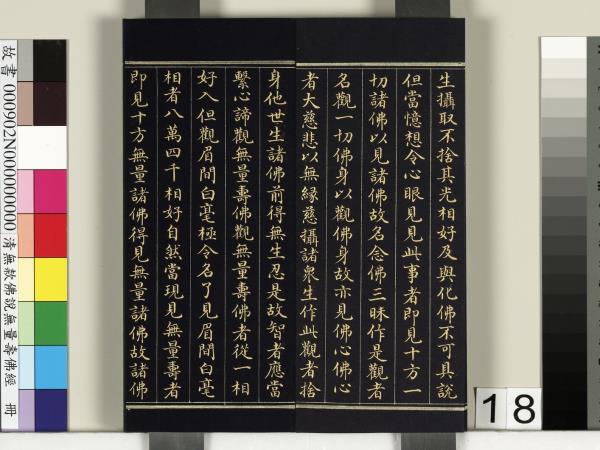 生攝取不捨其光相好及與化佛不可具說
但當憶想令心眼見見此事者即見十方一
切諸佛以見諸佛故名念佛三昧作是觀者
名觀一切佛身以觀佛身故亦見佛心佛心
者大慈悲以無緣慈攝諸眾生作此觀者捨
身他世生諸佛前得無生忍是故智者應當
繫心諦觀無量壽佛觀無量壽佛者從一相
好入但觀眉間白毫極令名了見眉間白毫
相者八萬四千相好自然當現見無量壽者
即見十方無量諸佛得見無量諸佛故諸佛
故書 000902N000000000 清無款佛說無量壽佛經 冊
18